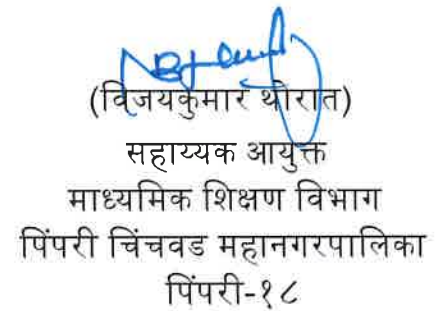 (विजयकुमार थोरात)
सहाय्यक आयुक्त
माध्यमिक शिक्षण विभाग
पिंपरी चिंचवड महानगरपालिका
पिंपरी-१८